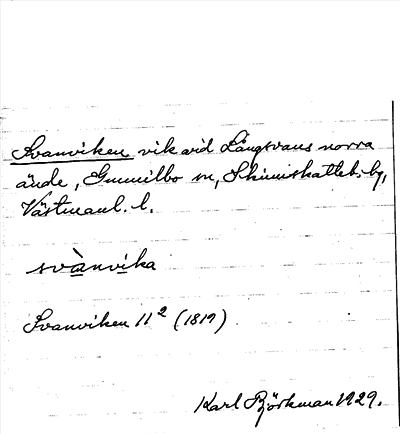 Svanviken vik vid Långsvans norra
ände, Gunnilbo sn, Skinnskatteb. bg,
Västmanl. l.
svànvika
Svanviken 11² (1819)
Karl Björkman 1929.